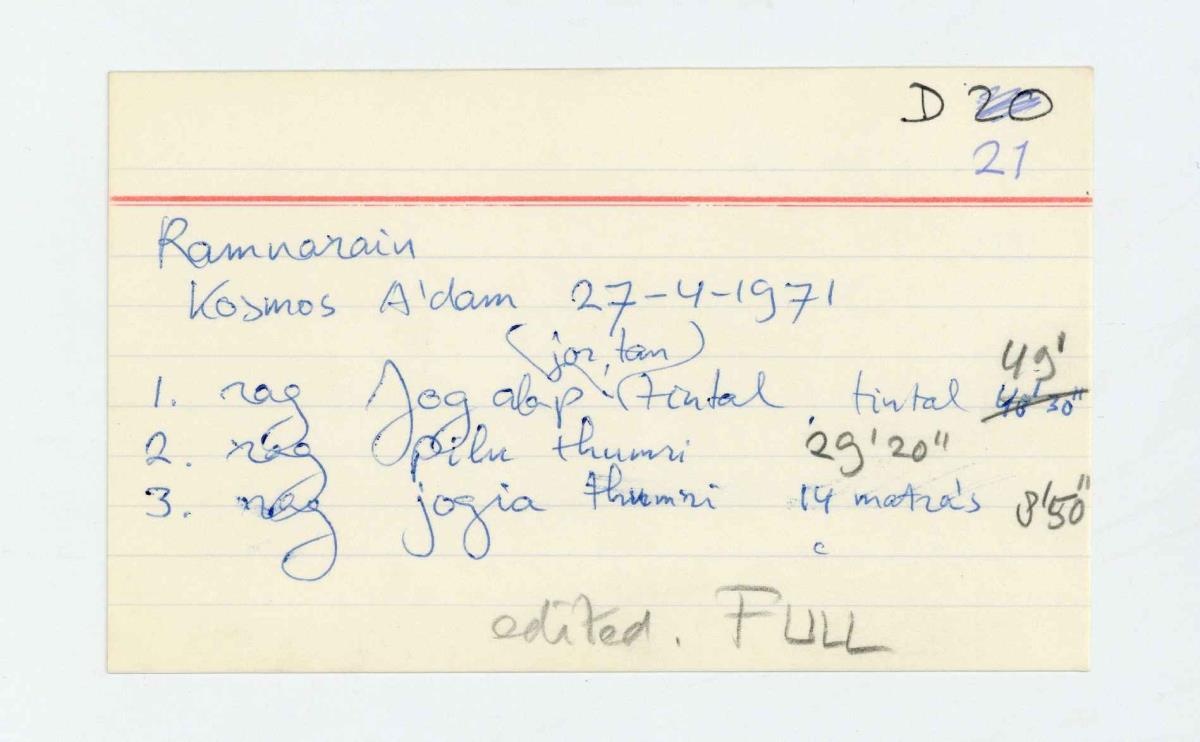 D 20
21
Ramnarain
Kosmos A'dam 27-4-1971
(jor, tan)
49'
1. rag Jog alap (tintal tintal 40'30"
2. rag pilu thumri 29'20"
3. rag jogia thumri 14 matra's 8'50"
c
edited. FULL